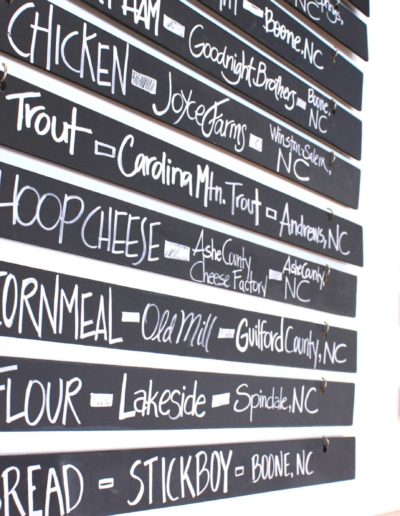 Boone, NC
HAM - Goodnight Brothers - Boone, NC
CHICKEN - Joyce Farms - Winston-Salem, NC
Trout - Carolina Mtn. Trout - Andrews, NC
HOOP CHEESE - Ashe County Cheese Factory - Ashe County, NC
CORNMEAL - Old Mill - Guilford County, NC
FLOUR - Lakeside - Spindale, NC
BREAD - STICKBOY - BOONE, NC